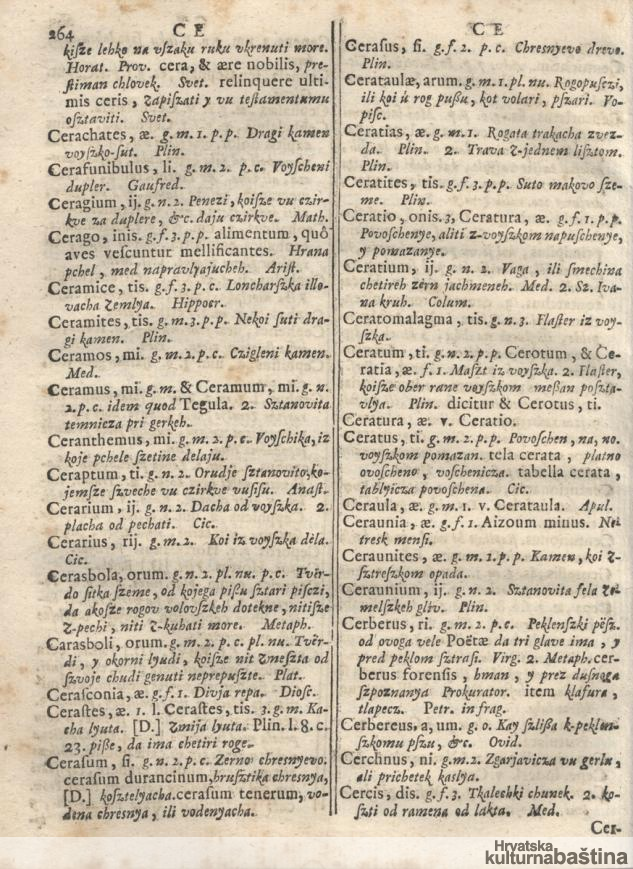 264
C E
kisze lehko na vszaku ruku vkrenuti more.
Horat. Prov. cera, & ære nobilis, pre-
stiman chlovek. Svet. relinquere ulti-
mis ceris, zapiszati y vu testamentumu
osztaviti. Svet.
Cerachates, æ. g. m. 1. p. p. Dragi kamen
voyszko-sut. Plin.
Cerafunibulus, li. g. m. 2. p. c. Voyscheni
dupler. Gaufred.
Ceragium, ij. g. n. 2. Penezi, koisze vu czir-
kve za duplere, &c. daju czirkve. Math.
Cerago, inis. g. f. 3. p. p. alimentum, quô
aves vescuntur mellificantes. Hrana
pchel, med napravlyajucheh. Arist.
Ceramice, tis. g. f. 3. p. c. Loncharszka illo-
vacha zemlya. Hippocr.
Ceramites, tis. g. m. 3. p. p. Nekoi suti dra-
gi kamen. Plin.
Ceramos, mi. g. m. 2. p. c. Czigleni kamen.
Med.
Ceramus, mi. g. m. & Ceramum, mi. g. n.
2. p. c. idem quod Tegula. 2. Sztanovita
temnicza pri gerkeh.
Ceranthemus, mi. g. m. 2. p. c. Voyschika, iz
koje pchele szetine delaju.
Ceraptum, ti. g. n. 2. Orudje sztanovito, ko-
jemsze szveche vu czirkve vusisu. Anast.
Cerarium, ij. g. n. 2. Dacha od voyszka. 2.
placha od pechati. Cic.
Cerarius, rij. g. m. 2. Koi iz voyszka dèla.
Cic.
Cerasbola, orum. g. n. 2. pl. nu. p. c. Tvèr-
do sitka szeme, od kojega pisu sztari piszci,
da akosze rogov volovszkeh dotekne, nitisze
z-pechi, niti z-kuhati more. Metaph.
Carasboli, orum. g. m. 2. p. c. pl. nu. Tvèr-
di, y okorni lyudi, koisze nit zmeszta od
szvoje chudi genuti neprepuszte. Plat.
Cerasconia, æ. g. f. 1. Divja repa. Diosc.
Cerastes, æ. 1. l. Cerastes, tis. 3. g. m. Ka-
cha lyuta. [D.] Zmija lyuta. Plin. l. 8. c.
23. piße, da ima chetiri roge.
Cerasum, si. g. n. 2. p. c. Zerno chresnyevo.
cerasum durancinum, hrusztika chresnya,
[D.] kosztelyacha. cerasum tenerum, vo-
dena chresnya, ili vodenyacha.
C E
Cerasus, si. g. f. 2. p. c. Chresnyevo drevo.
Plin.
Cerataulæ, arum. g. m. 1. pl. nu. Rogopuszczi,
ili koi ù rog pußu, kot volari, pszari. Vo-
pisc.
Ceratias, æ. g. m. 1. Rogata trakacha zvez-
da. Plin. 2. Trava z-jednem lisztom.
Plin.
Ceratites, tis. g. f. 3. p. p. Suto makovo sze-
me. Plin.
Ceratio, onis. 3, Ceratura, æ. g. f. 1. p. p.
Povoschenye, aliti z-voyszkom napuschenye,
y pomazanye.
Ceratium, ij. g. n. 2. Vaga, ili smechina
chetireh zèrn jachmeneh. Med. 2. Sz. Iva-
na kruh. Colum.
Ceratomalagma, tis. g. n. 3. Flaster iz voy-
szka.
Ceratum, ti. g. n. 2. p. p. Cerotum, & Ce-
ratia, æ. f. 1. Maszt iz voyszka. 2. Flaster,
koisze ober rane voyszkom meßan poszta-
vlya. Plin. dicitur & Cerotus, ti.
Ceratura, æ. v. Ceratio.
Ceratus, ti. g. m. 2. p. p. Povoschen, na, no.
voyszkom pomazan. tela cerata, platno
ovoscheno, voschenicza. tabella cerata,
tablyicza povoschena. Cic.
Ceraula, æ. g. m. 1. v. Cerataula. Apul.
Ceraunia, æ. g. f. 1. Aizoum minus. Na
tresk mensi.
Ceraunites, æ. g. m. 1. p. p. Kamen, koi z-
sztreszkom opada.
Ceraunium, ij. g. n. 2. Sztanovita fela ze-
melszkeh gliv. Plin.
Cerberus, ri. g. m. 2. p. c. Peklenszki pësz.
od ovoga vele Poëtæ da tri glave ima, y
pred peklom sztrasi. Virg. 2. Metaph. cer-
berus forensis, hman, y prez dusnoga
szpoznanya Prokurator. item klafura,
tlapecz. Petr. in frag.
Cerbereus, a, um. g. o. Kay szlißa k-peklen-
szkomu pszu, &c. Ovid.
Cerchnus, ni. g. m. 2. Zgarjavicza vu gerlu,
ali prichetek kaslya.
Cercis, dis. g. f. 3. Tkalechki chunek. 2. ko-
szti od ramena od lakta. Med.
Cer-
Hrvatska
kulturnabaština